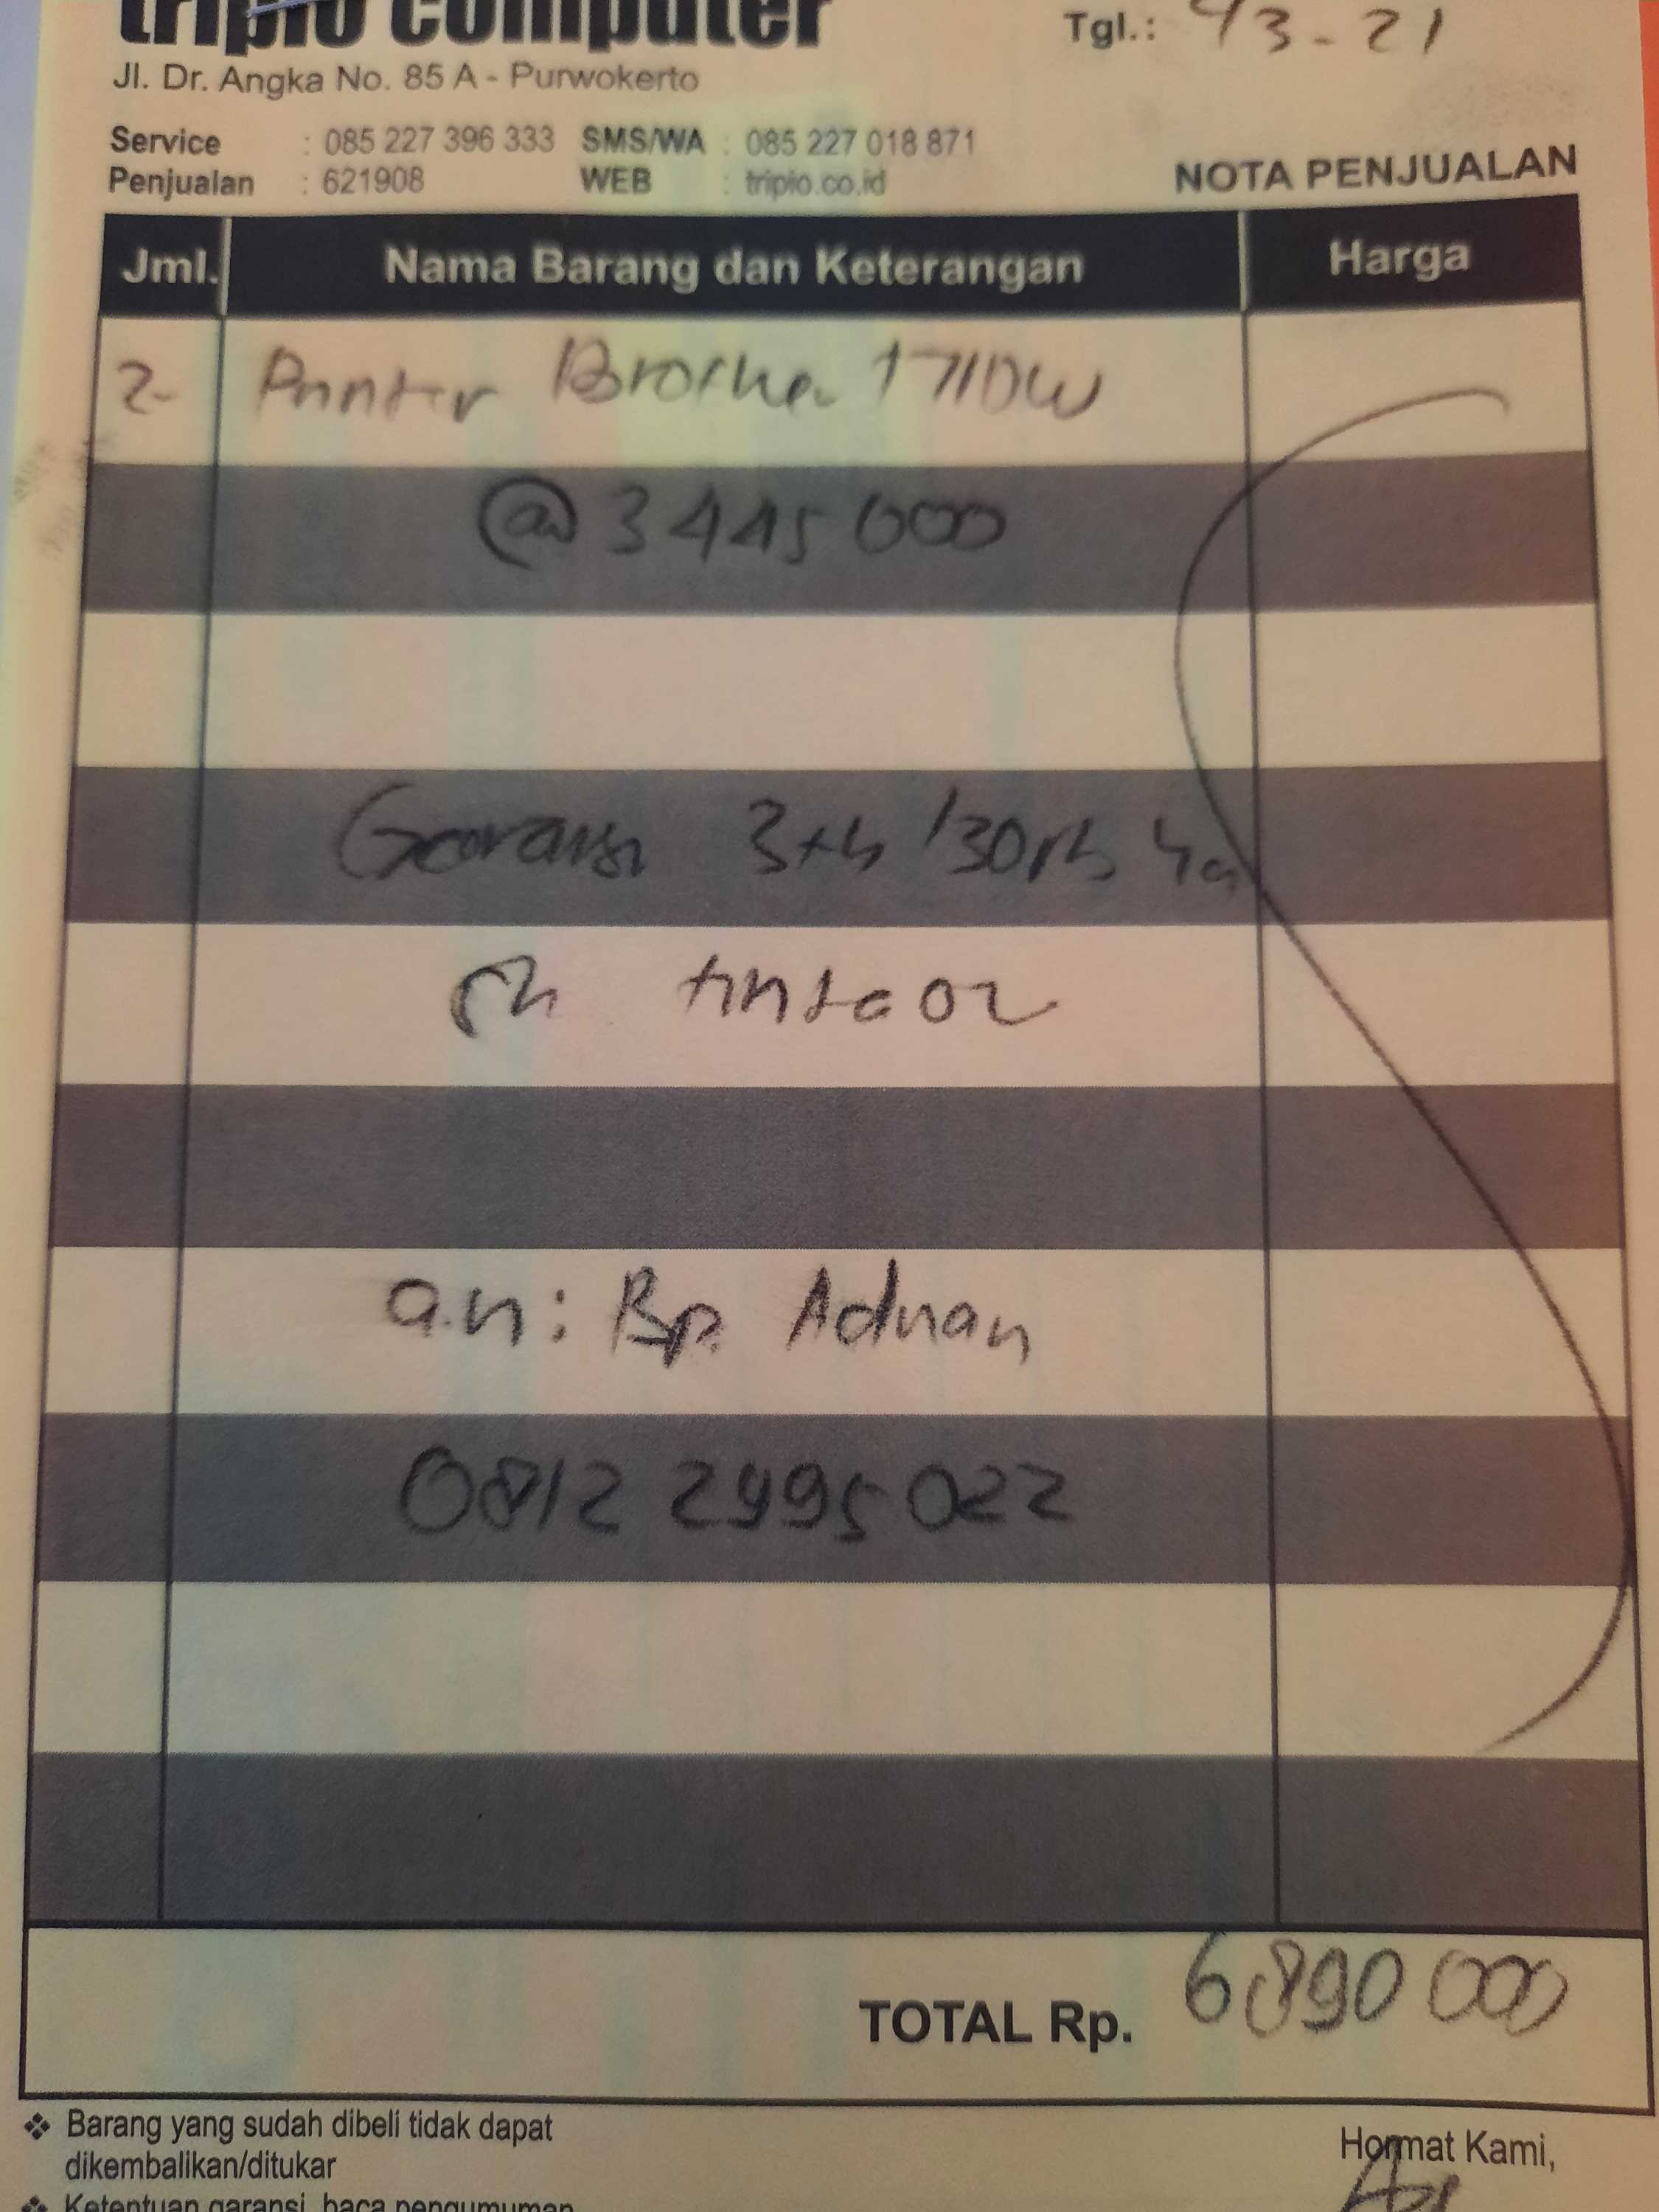 tripio computer
Tgl.: 4 3 - 21
Jl. Dr. Angka No. 85 A - Purwokerto
Service : 085 227 396 333 SMS/WA : 085 227 018 871
Penjualan : 621908 WEB : tripio.co.id
NOTA PENJUALAN
Jml. Nama Barang dan Keterangan Harga
2- Printer Brother T710W
@ 3445 000
Garansi 3th /30rb
tinta or
a.n : Bp. Adnan
0812 2995 022
TOTAL Rp. 6890 000
❖ Barang yang sudah dibeli tidak dapat
dikembalikan/ditukar
Hormat Kami,
❖ Ketentuan garansi, baca pengumuman